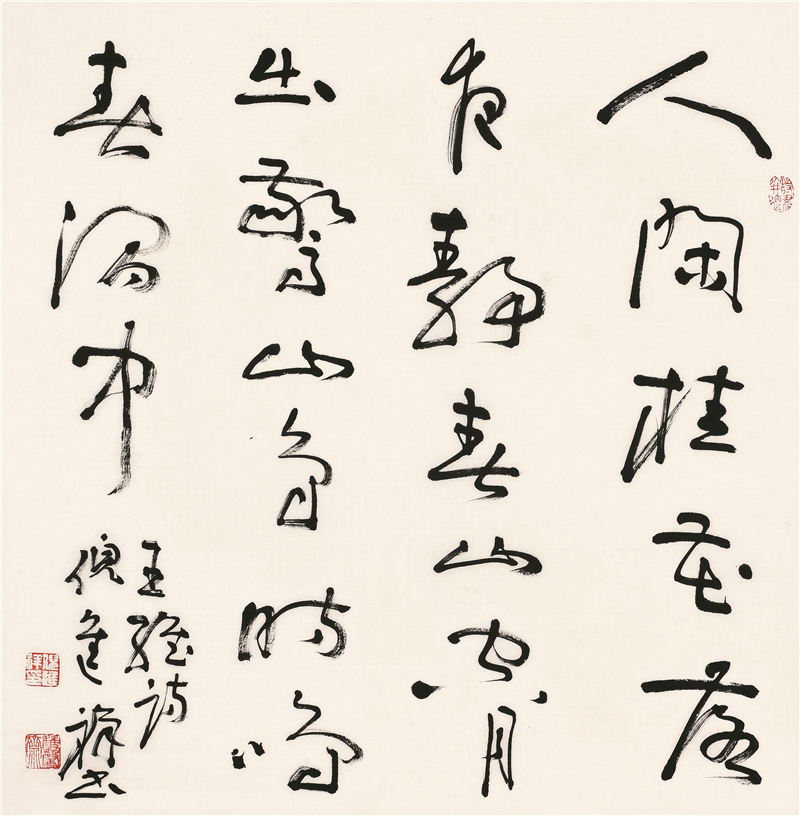 人閑桂花落
夜靜春山空月
出驚山鳥時鳴
春澗中
王維詩
倪進祥書